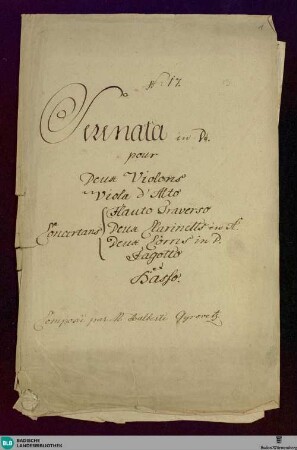 N: 17.
Serenata in D.
pour
Deux Violons
Viola d'Alto
Flauto Traverso
Concertans Deux Clarinetts in A.
Deux Corns in D.
Fagotto
Basso.
Composé par M. Dalberti Gyrovetz
BLB BADISCHE
LANDESBIBLIOTHEK
Baden-Württemberg